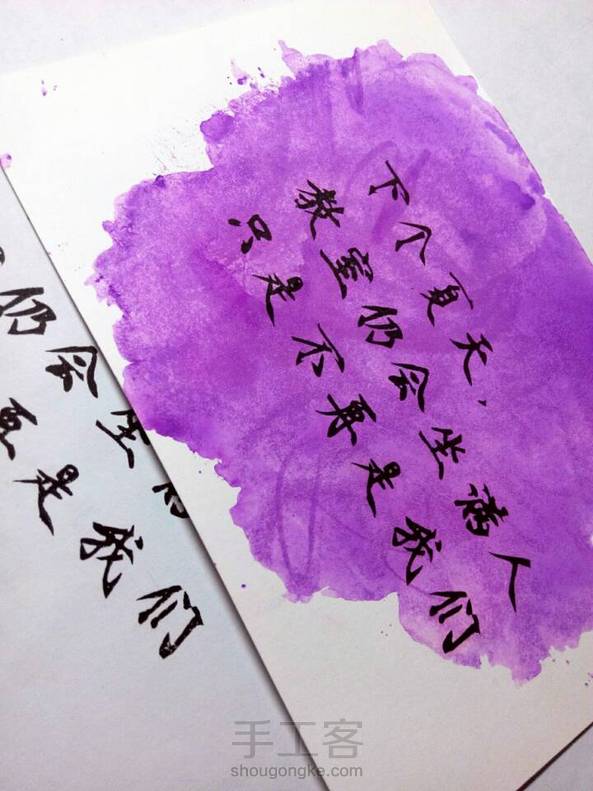 下个夏天，
教室仍会坐满人
只是不再是我们
仍会坐
再是我们
手工客
shougongke.com